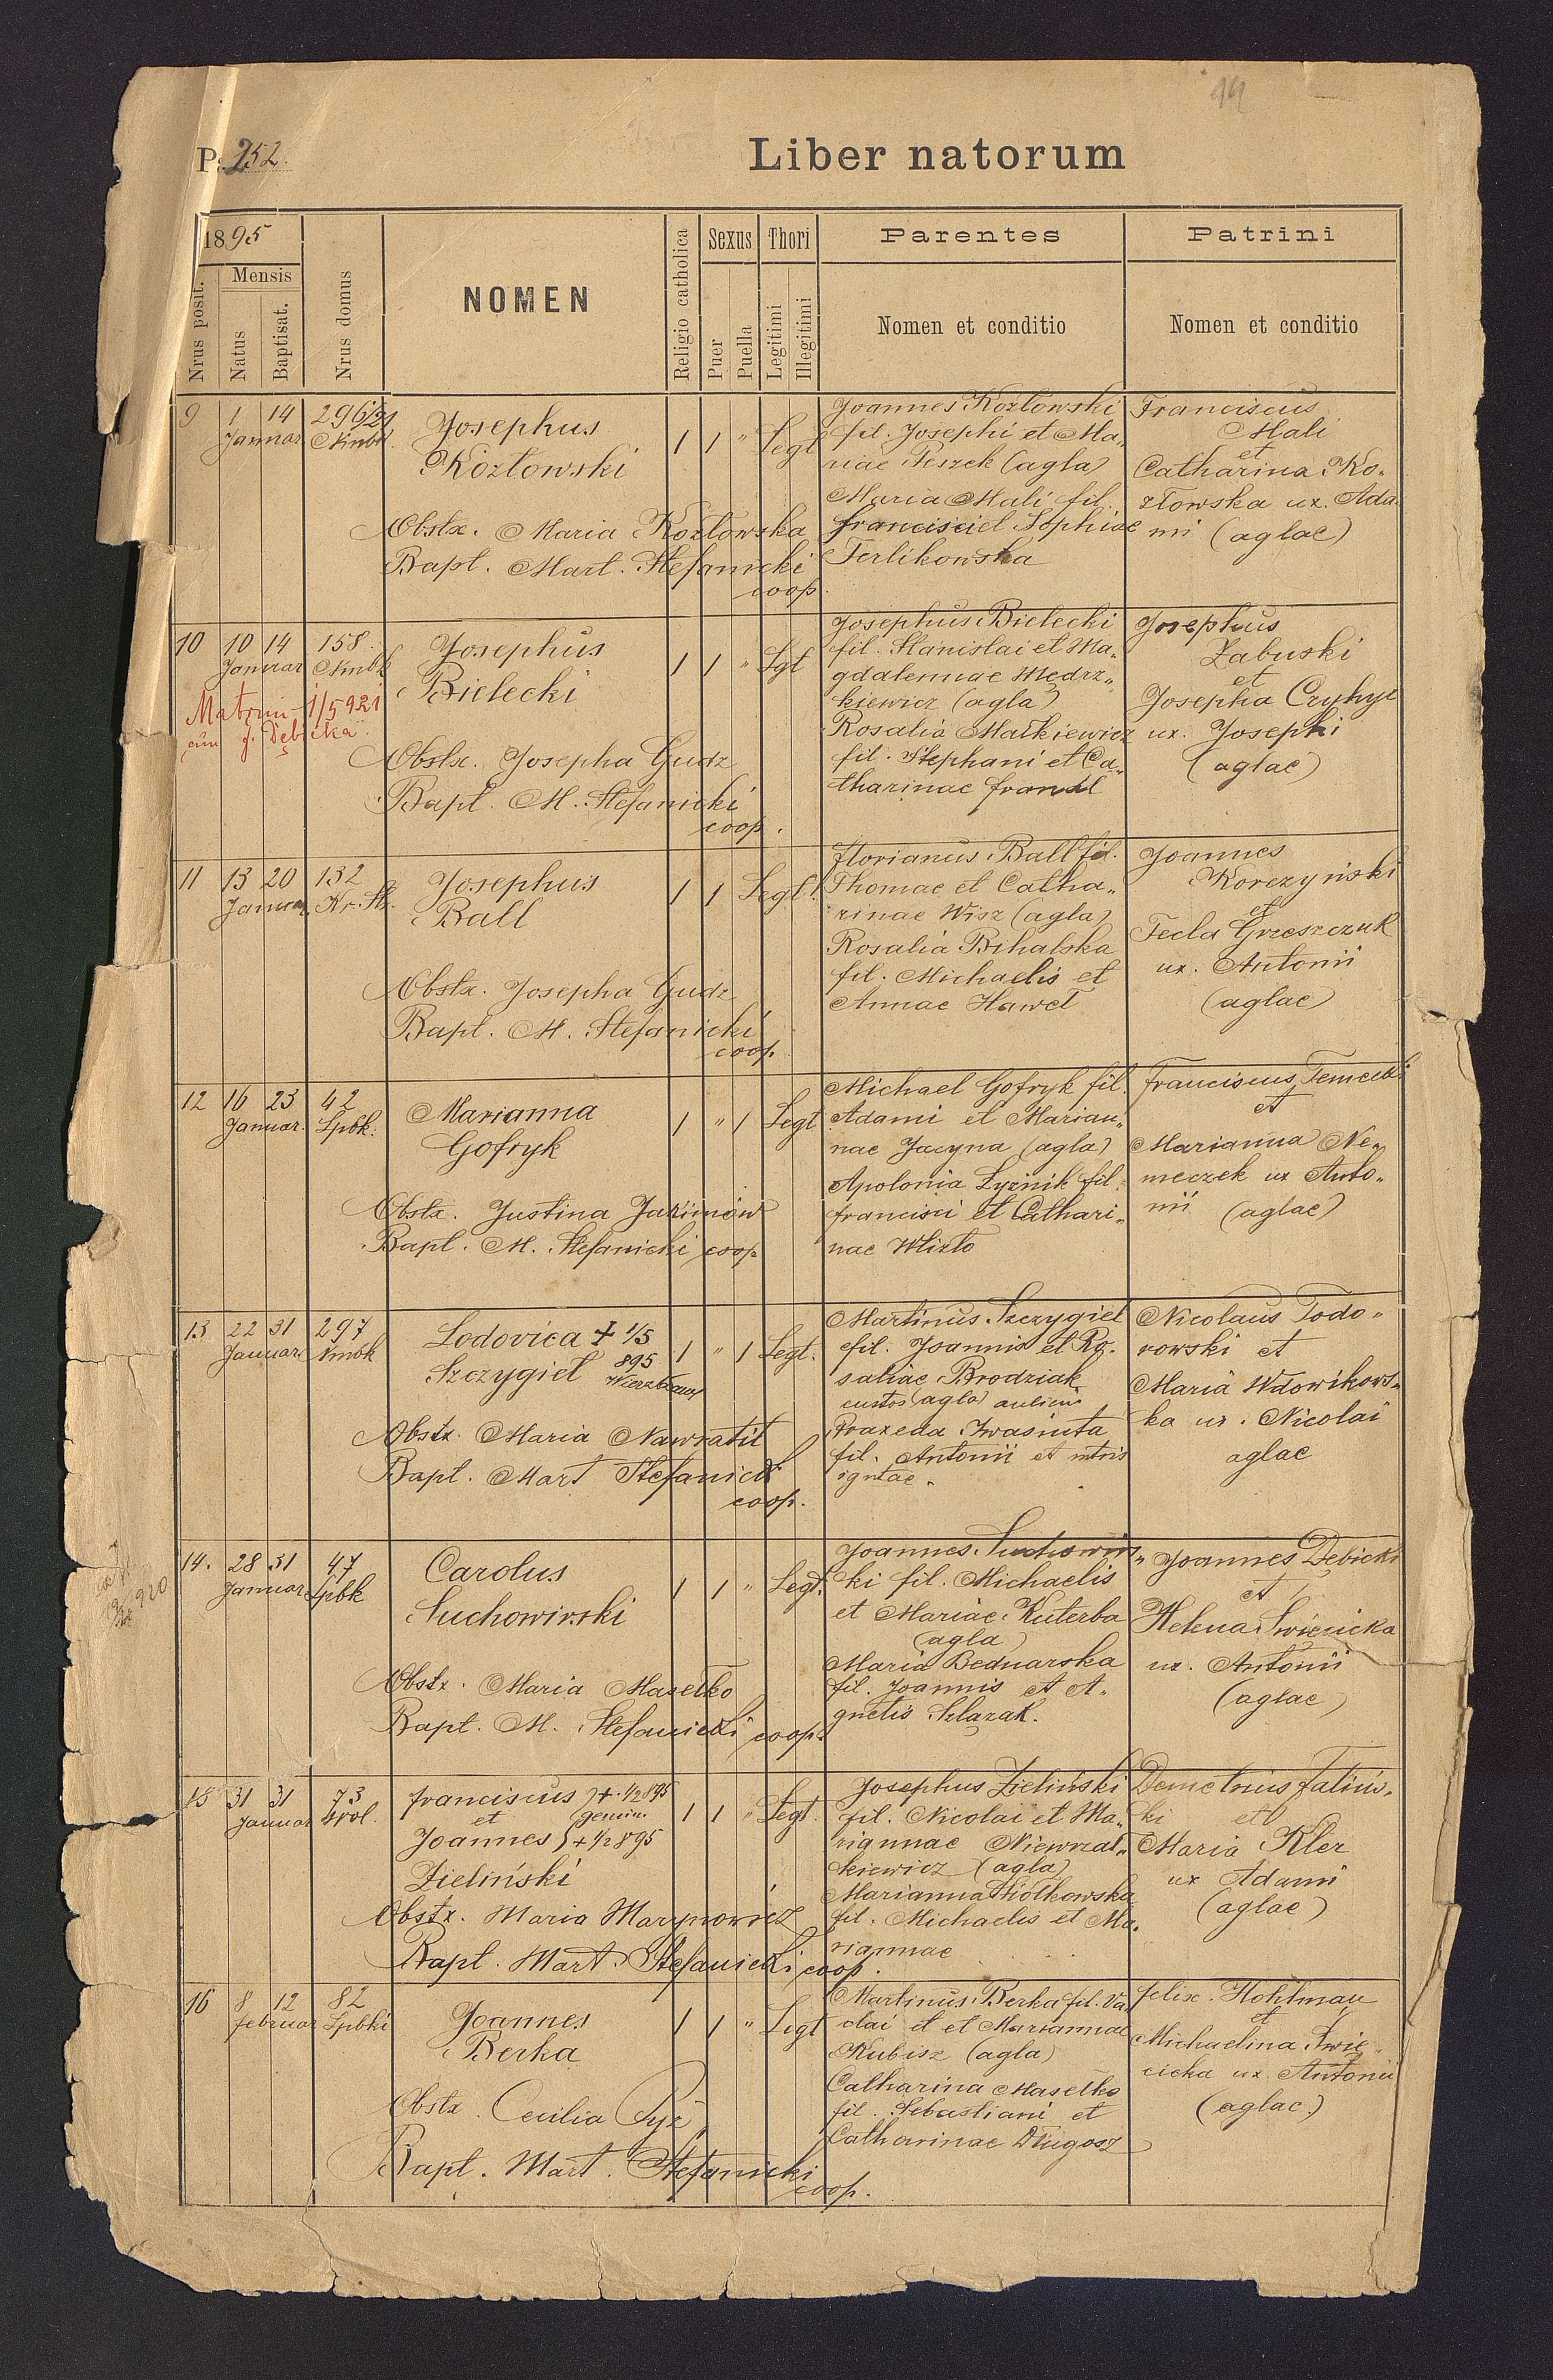 94
P. 252.
Liber natorum
1895
Mensis
Nrus posit.
Natus
Baptisat.
Nrus domus
NOMEN
Religio catholica
Sexus
Puer
Puella
Thori
Legitimi
Illegitimi
Parentes
Nomen et conditio
Patrini
Nomen et conditio
9 1 14 296/21
Januar Nmbk.
Josephus
Kozłowski
1 1 " Legt
Obstx. Maria Kozłowska
Bapt. Mart. Stefanicki
coop.
Joannes Kozłowski
fil. Josephi et Ma„
riae Peszek (agla)
Maria Mali fil.
Francisci et Sophiae
Terlikowska
Franciscus
Mali
et
Catharina Ko„
złowska ux. Ada„
mi (aglae)
10 10 14 158.
Januar Nmbk
Matrim 1/5 921
cum J. Dębicka
Josephus
Bielecki
1 1 " Lgt
Obstx. Josepha Gudz
Bapt. M. Stefanicki
coop.
Josephus Bielecki
fil. Stanislai et Ma„
gdalennae Mędrz„
kiewicz (agla)
Rosalia Małkiewicz
fil. Stephani et Ca„
tharinae
Josephus
Zabuski
et
Josepha
ux. Josephi
(aglae)
11 13 20 132
Januar Kr. St.
Josephus
Ball
1 1 Legt.
Obstx. Josepha Gudz
Bapt. M. Stefanicki
coop.
Florianus Ball fil.
Thomae et Catha„
rinae Wisz (agla)
Rosalia Bihalska
fil. Michaelis et
Annae Haweł
Joannes
Korczyński
et
Tecla Grzeszczuk
ux. Antonii
(aglae)
12 16 23 42
Januar. Lpbk.
Marianna
Gofryk
1 " 1 Legt
Obstx. Justina Jakimów
Bapt. M. Stefanicki coop
Michael Gofryk fil.
Adami et Marian„
nae Jacyna (agla)
Apolonia Łyźnik fil.
Francisci et Cathari„
nae
Franciscus
et
Marianna Ne„
meczek ux Anto„
nii (aglae)
13 22 31 297
Januar Nmbk
Lodovica + 1/5
Szczygieł 895
1 " 1 Legt.
Obstx. Maria Nawratil
Bapt. Mart Stefanicki
coop.
Martinus Szczygieł
fil. Joannis et Ro„
saliae Brodziak
custos (agla) aulicus
Praxeda Iwasiuta
fil. Antonii et mtris
igntae.
Nicolaus Todo„
rowski et
Maria Wdowikows„
ka ux. Nicolai
aglae
14. 28 31 47
Januar Lpbk
920
Carolus
Suchowirski
1 1 " Legt.
Obstx. Maria Masełko
Bapt. M. Stefanicki coop.
Joannes Suchowirs„
ki fil. Michaelis
et Mariae Kuterba
(agla)
Maria Bednarska
fil. Joannis et A„
gnetis Szlazak.
Joannes Dębicki
et
Helena Swięcicka
ux. Antonii
(aglae)
15 31 31 73
Januar Wol.
Franciscus + 1/2 895
et gemin.
Joannes + 1/2 895
Zieliński
1 1 " Legt.
Obstx. Maria Marynowicz
Bapt. Mart. Stefanicki coop.
Josephus Zieliński
fil. Nicolai et Ma„
riannae Niewrzał„
kiewicz (agla)
Marianna Ziółkowska
fil. Michaelis et Ma„
riannae
Demetrius Falińs„
ki et
Maria Kler
ux Adami
(aglae)
16 8 12 82
Februar Lpbki
Joannes
Berka
1 1 " Legt
Obstx. Cecilia Pyż
Bapt. Mart. Stefanicki
coop.
Martinus Berka fil.
et et Mariannae
Kubisz (agla)
Catharina Masełko
fil. Sebastiani et
Catharinae Długosz
Felix Hohlman
et
Michaelina Swię„
cicka ux. Antonii
(aglae.)